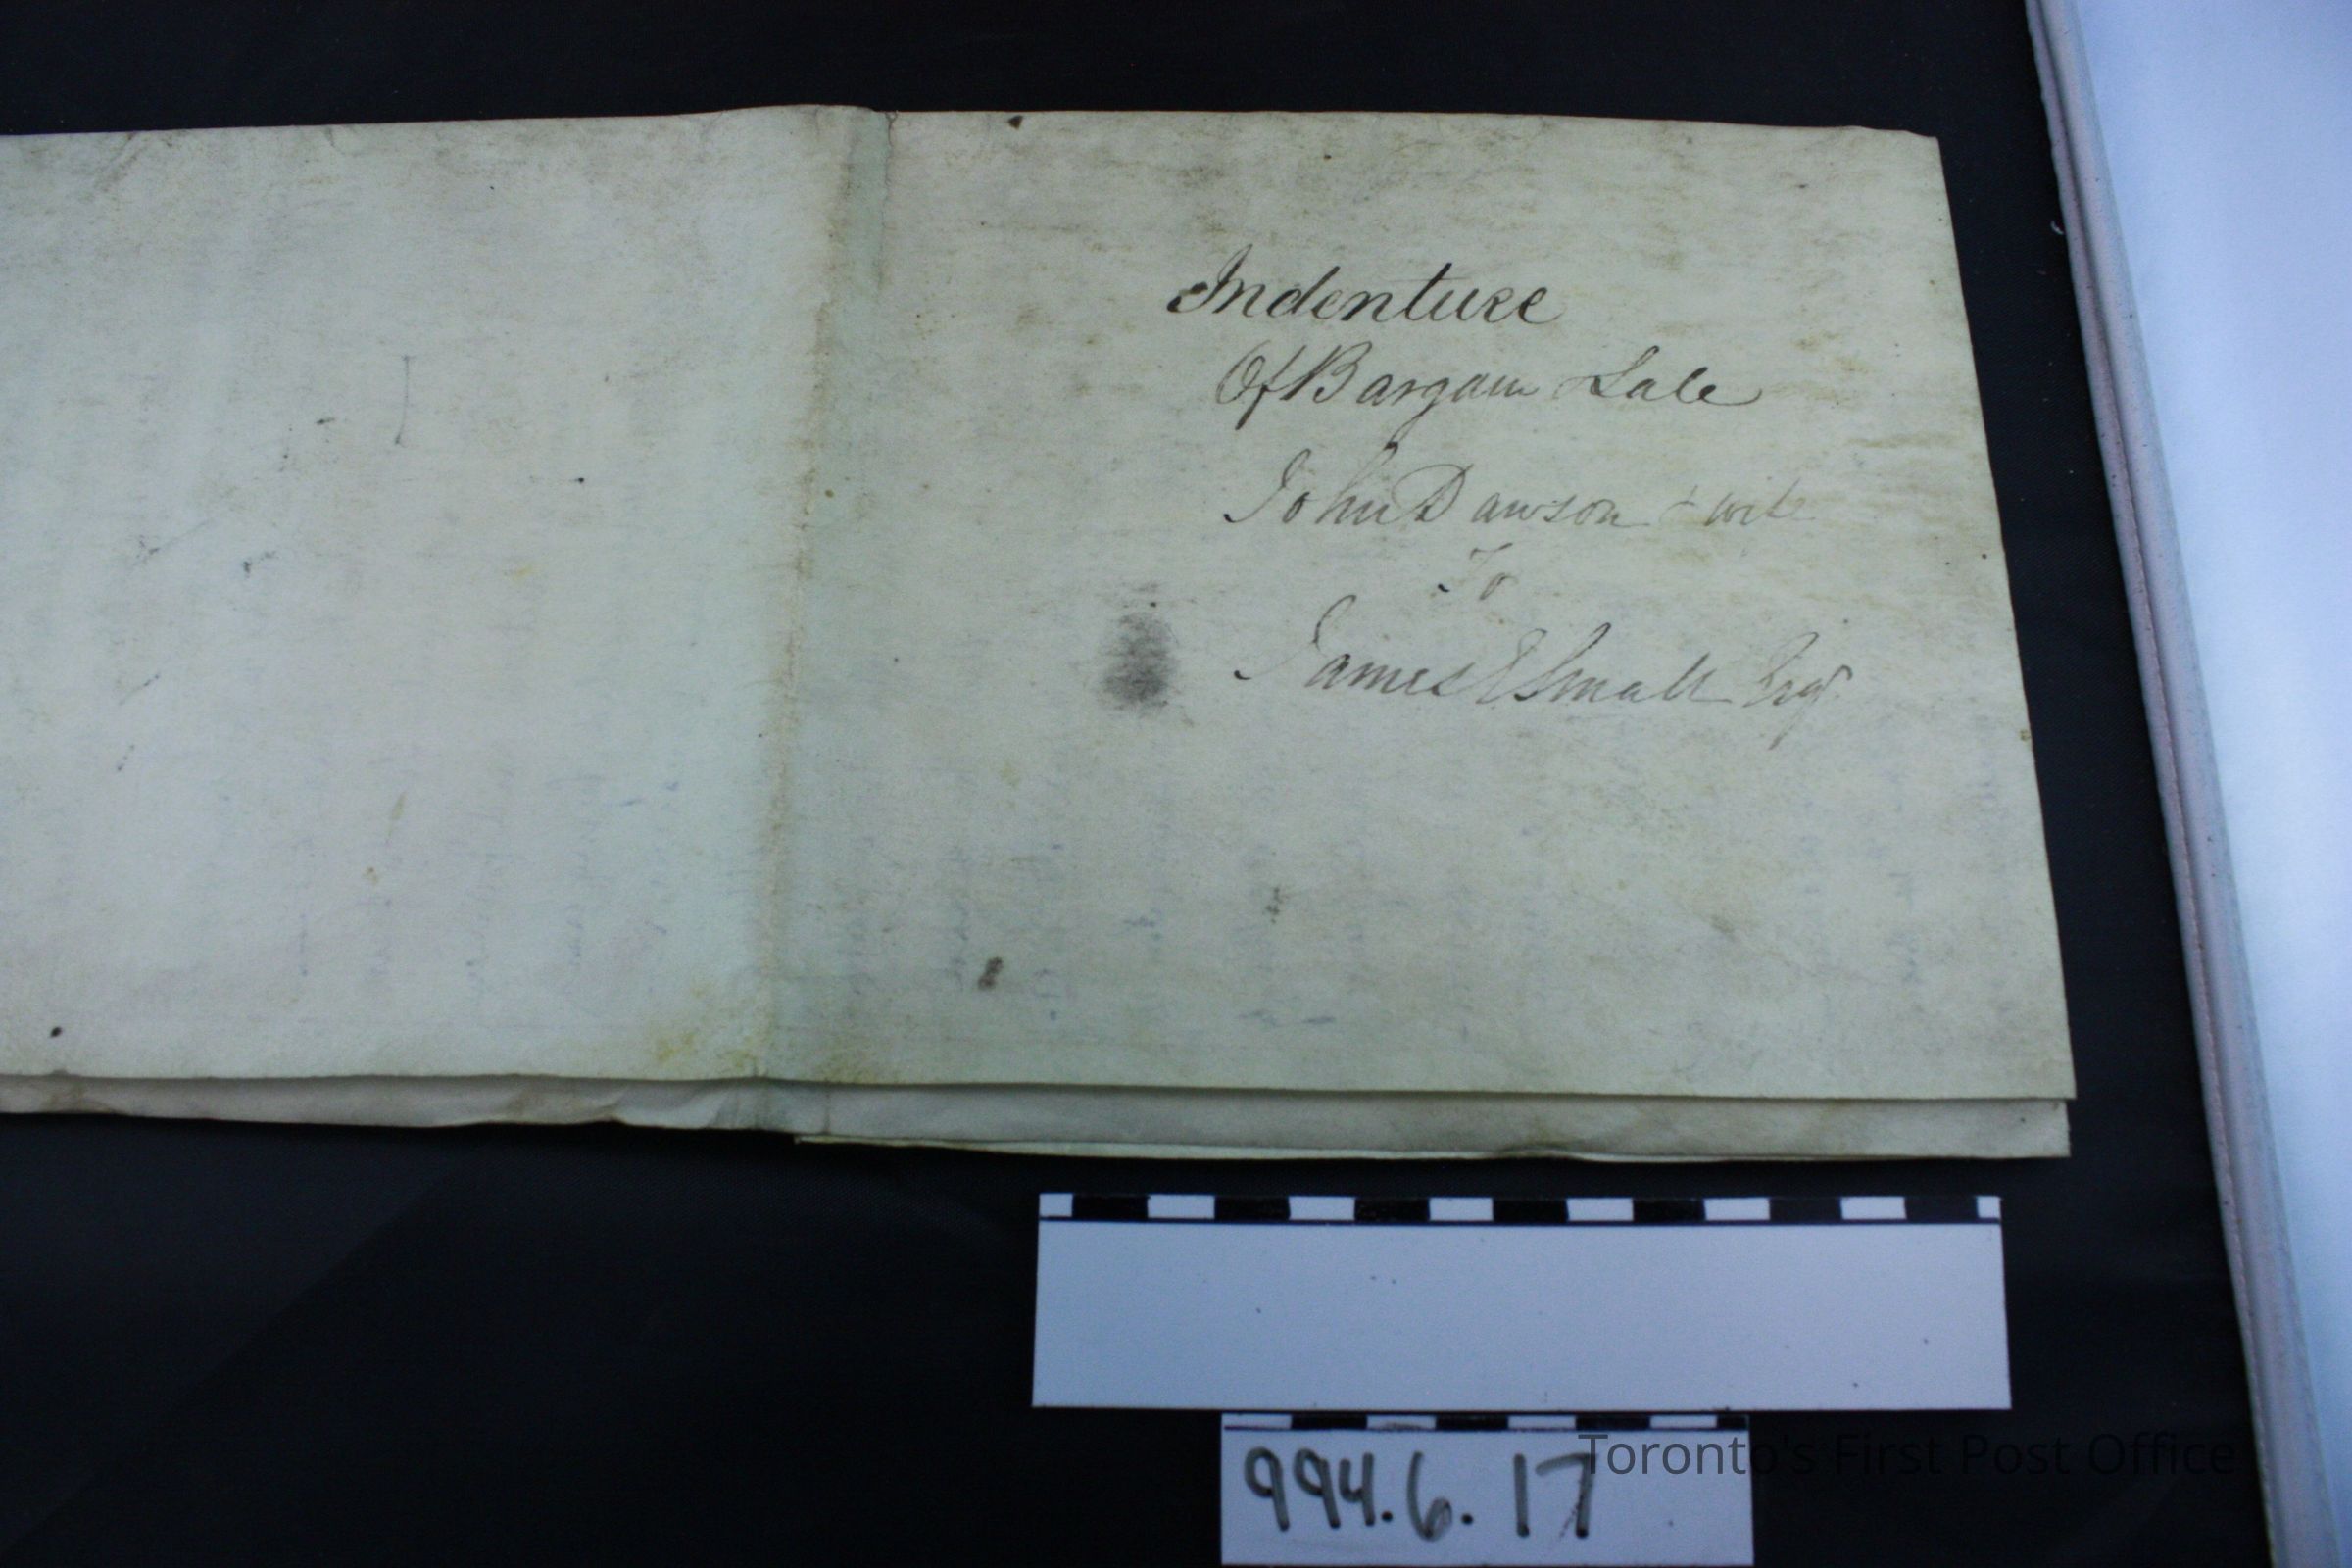 Indenture
Of Bargain & Sale
John Dawson & wife
To
James E Small Esqr
994.6.17
Toronto's First Post Office